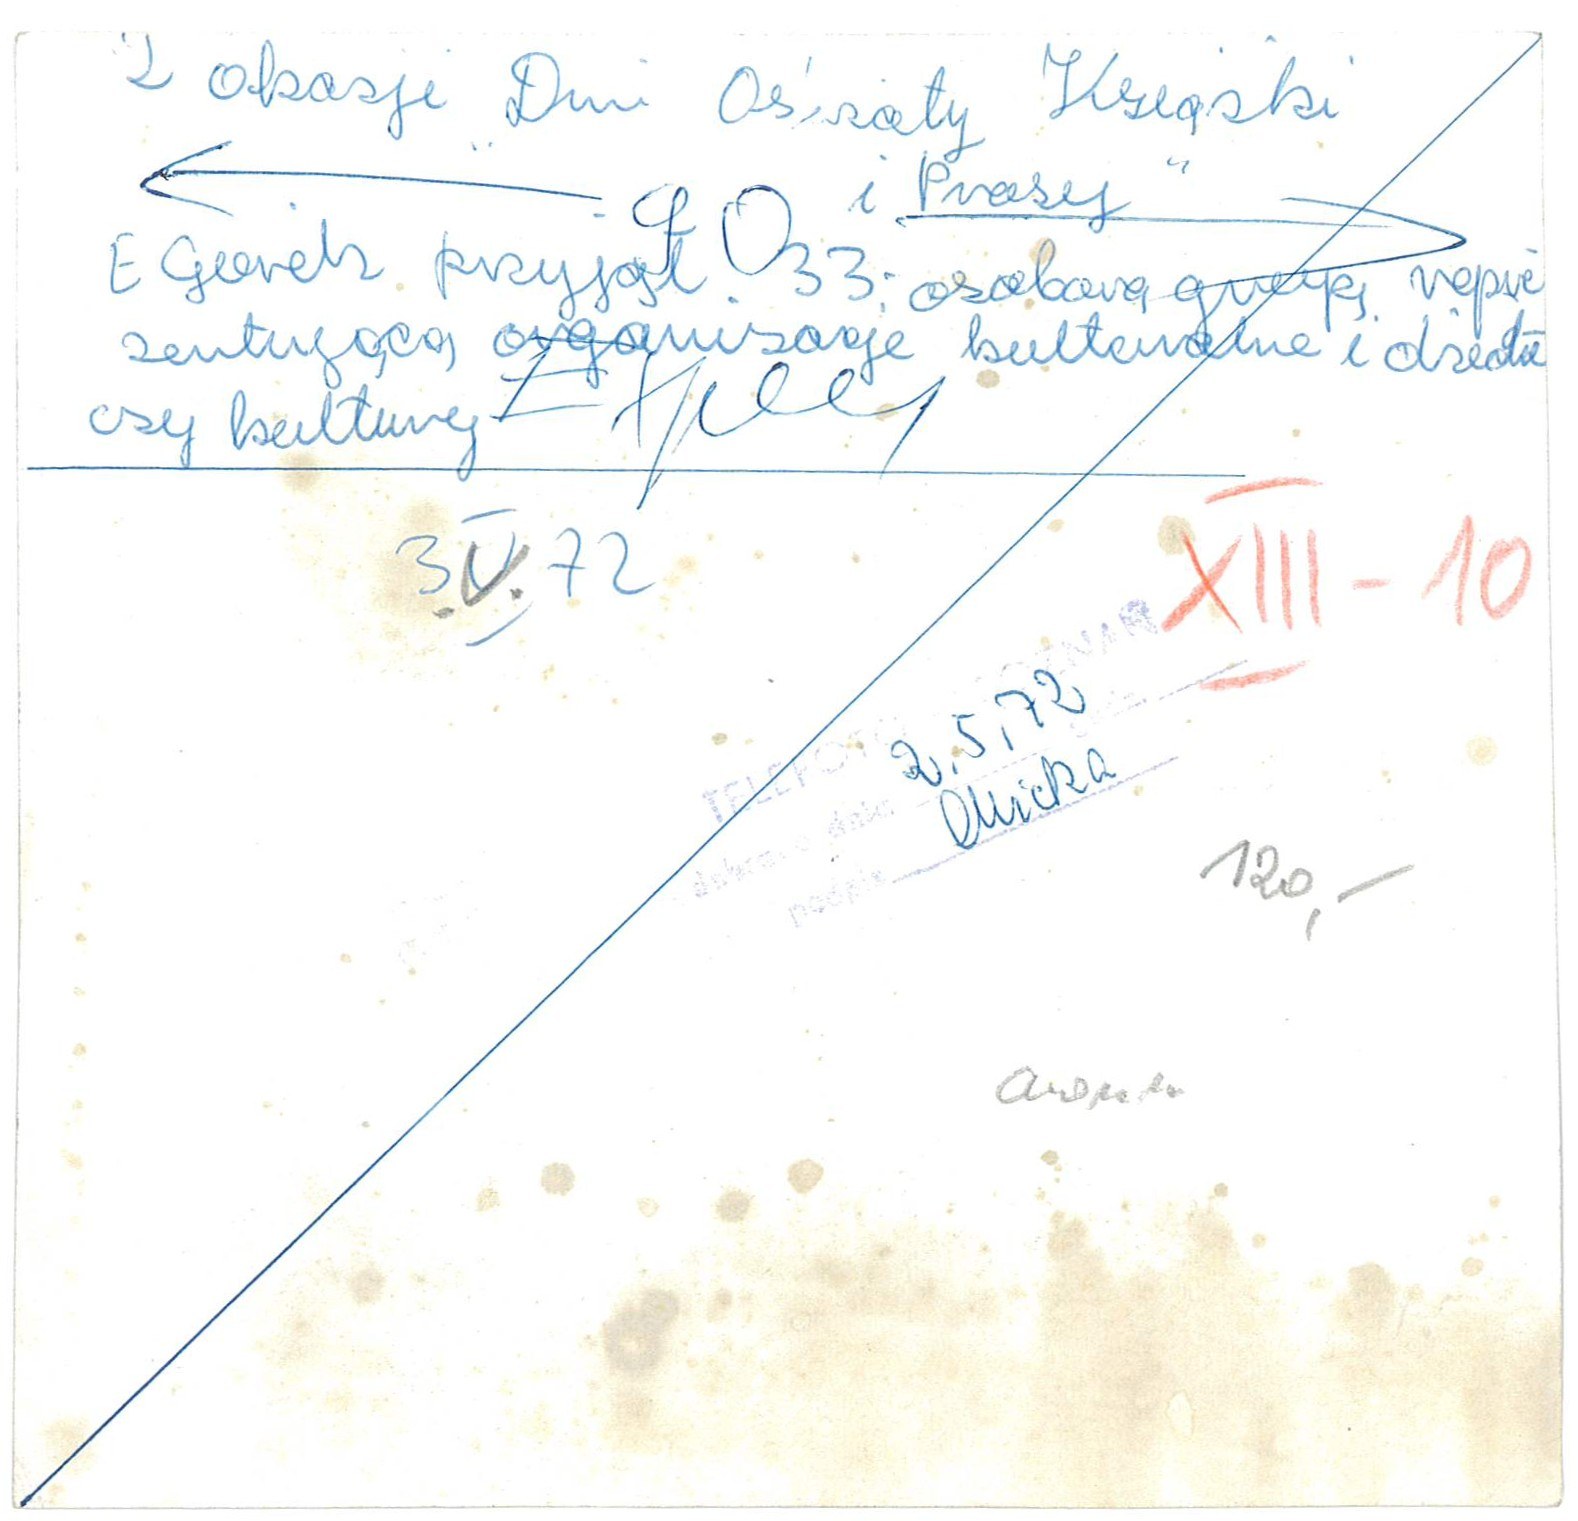 Z okazji „Dni Oświaty Książki
i Prasy"
E Gierek przyjął 33-osobową grupę repre
zentującą organizacje kulturalne i działa
czy kultury
3.V.72
XIII-10
TELEFOTO POZNAŃ
2.5.72
podpis
120,-